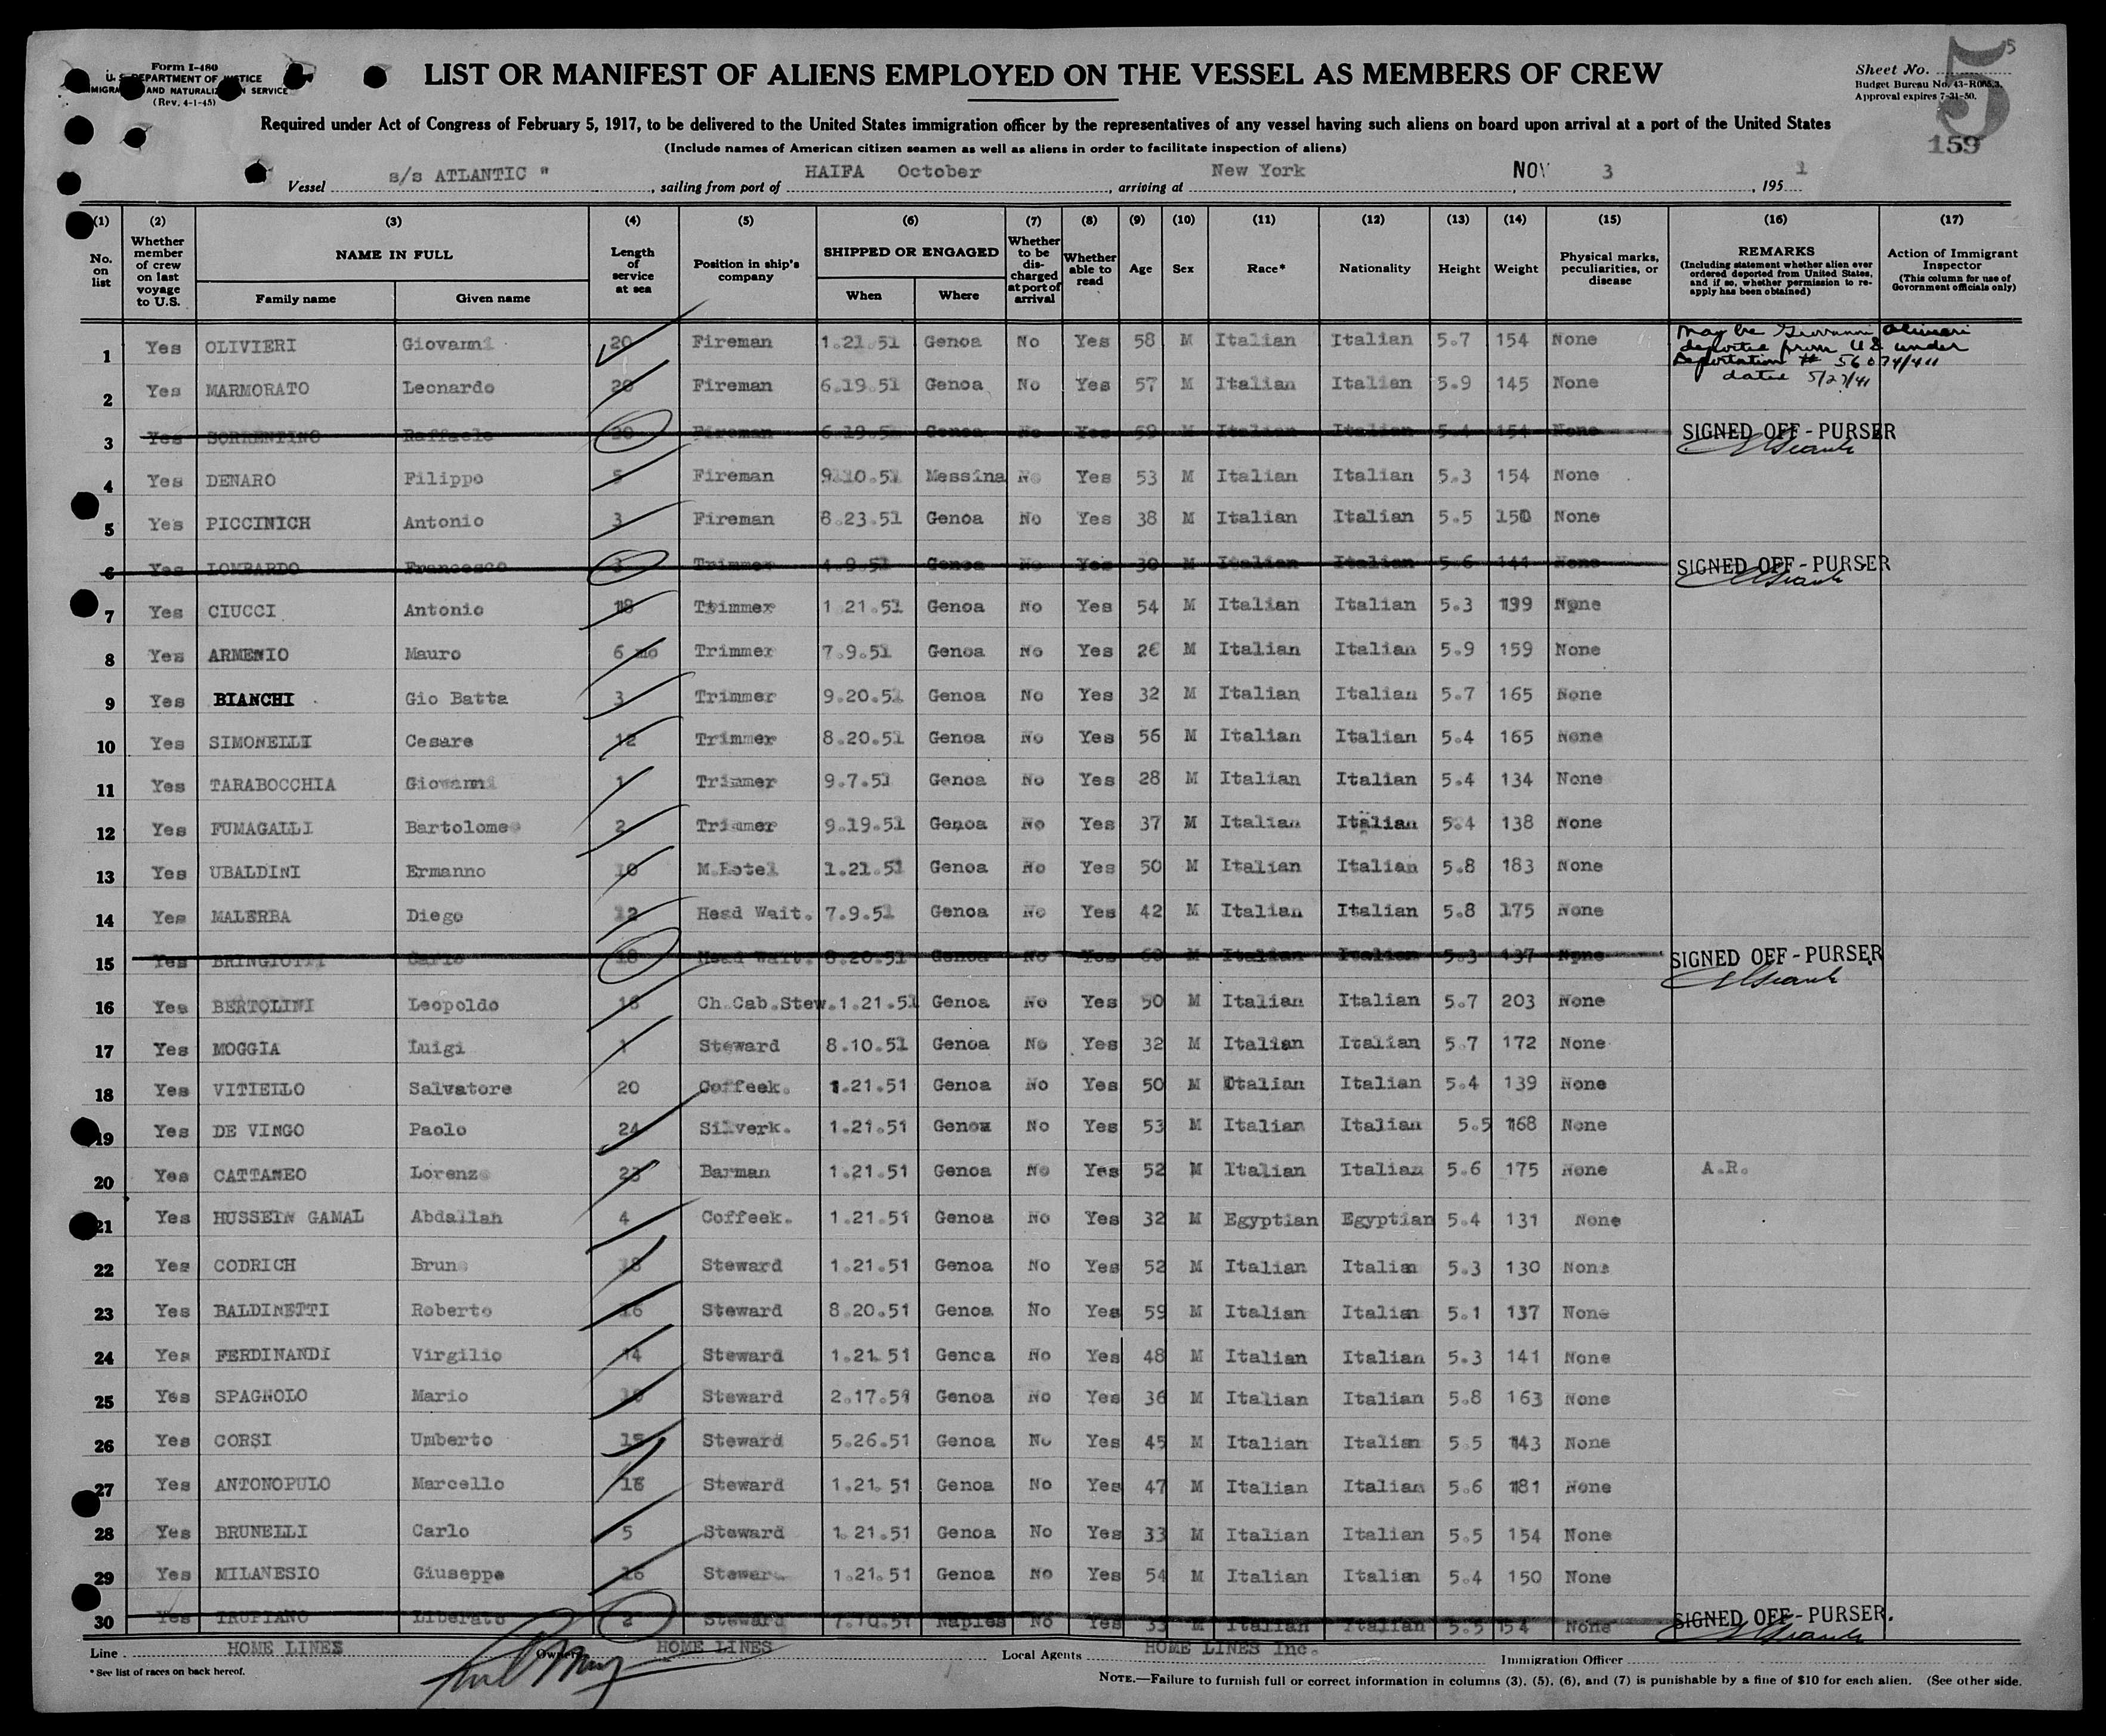 Form I-480
U. S. DEPARTMENT OF JUSTICE
IMMIGRATION AND NATURALIZATION SERVICE
(Rev. 4-1-45)
LIST OR MANIFEST OF ALIENS EMPLOYED ON THE VESSEL AS MEMBERS OF CREW
Sheet No. 5
Budget Bureau No. 43-R065.3.
Approval expires 7-31-50.
5
159
Required under Act of Congress of February 5, 1917, to be delivered to the United States immigration officer by the representatives of any vessel having such aliens on board upon arrival at a port of the United States
(Include names of American citizen seamen as well as aliens in order to facilitate inspection of aliens)
Vessel s/s ATLANTIC " , sailing from port of HAIFA October , arriving at New York NOV 3 , 1951
(1) (2) (3) (4) (5) (6) (7) (8) (9) (10) (11) (12) (13) (14) (15) (16) (17)
No. on list
Whether member of crew on last voyage to U.S.
NAME IN FULL
Family name
Given name
Length of service at sea
Position in ship's company
SHIPPED OR ENGAGED
When
Where
Whether to be discharged at port of arrival
Whether able to read
Age
Sex
Race*
Nationality
Height
Weight
Physical marks, peculiarities, or disease
REMARKS
(Including statement whether alien ever ordered deported from United States, and if so, whether permission to re-apply has been obtained)
Action of Immigrant Inspector
(This column for use of Government officials only)
1 Yes OLIVIERI Giovanni 20 Fireman 1.21.51 Genoa No Yes 58 M Italian Italian 5.7 154 None May be Giovanni Olivieri deported from US under Deportation # 56074/411 dated 5/27/41
2 Yes MARMORATO Leonardo 20 Fireman 6.19.51 Genoa No Yes 57 M Italian Italian 5.9 145 None
3 Yes SORRENTINO Raffaele 20 Fireman 6.19.51 Genoa No Yes 59 M Italian Italian 5.4 154 None SIGNED OFF - PURSER
4 Yes DENARO Filippo 5 Fireman 9.10.51 Messina No Yes 53 M Italian Italian 5.3 154 None
5 Yes PICCINICH Antonio 3 Fireman 8.23.51 Genoa No Yes 38 M Italian Italian 5.5 150 None
6 Yes LOMBARDO Francesco 3 Trimmer 4.9.51 Genoa No Yes 30 M Italian Italian 5.6 141 None SIGNED OFF - PURSER
7 Yes CIUCCI Antonio 18 Trimmer 1 21.51 Genoa No Yes 54 M Italian Italian 5.3 199 None
8 Yes ARMENIO Mauro 6 mo Trimmer 7.9.51 Genoa No Yes 26 M Italian Italian 5.9 159 None
9 Yes BIANCHI Gio Batta 3 Trimmer 9.20.51 Genoa No Yes 32 M Italian Italian 5.7 165 None
10 Yes SIMONELLI Cesare 12 Trimmer 8.20.51 Genoa No Yes 56 M Italian Italian 5.4 165 None
11 Yes TARABOCCHIA Giovanni 1 Trimmer 9.7.51 Genoa No Yes 28 M Italian Italian 5.4 134 None
12 Yes FUMAGALLI Bartolomeo 2 Trimmer 9.19.51 Genoa No Yes 37 M Italian Italian 5.4 138 None
13 Yes UBALDINI Ermanno 10 M.Hotel 1.21.51 Genoa No Yes 50 M Italian Italian 5.8 183 None
14 Yes MALERBA Diego 12 Head Wait. 7.9.51 Genoa No Yes 42 M Italian Italian 5.8 175 None
15 Yes BRINGIOTTI Carlo 18 Head Wait. 8.20.51 Genoa No Yes 60 M Italian Italian 5.3 137 None SIGNED OFF - PURSER
16 Yes BERTOLINI Leopoldo 16 Ch.Cab.Stew. 1.21.51 Genoa No Yes 50 M Italian Italian 5.7 203 None
17 Yes MOGGIA Luigi 1 Steward 8.10.51 Genoa No Yes 32 M Italian Italian 5.7 172 None
18 Yes VITIELLO Salvatore 20 Coffeek. 1.21.51 Genoa No Yes 50 M Italian Italian 5.4 139 None
19 Yes DE VINGO Paolo 24 Silverk. 1.21.51 Genoa No Yes 53 M Italian Italian 5.5 168 None
20 Yes CATTANEO Lorenzo 23 Barman 1.21.51 Genoa No Yes 52 M Italian Italian 5.6 175 None A.R.
21 Yes HUSSEIN GAMAL Abdallah 4 Coffeek. 1.21.51 Genoa No Yes 32 M Egyptian Egyptian 5.4 131 None
22 Yes CODRICH Bruno 18 Steward 1.21.51 Genoa No Yes 52 M Italian Italian 5.3 130 None
23 Yes BALDINETTI Roberto 16 Steward 8.20.51 Genoa No Yes 59 M Italian Italian 5.1 137 None
24 Yes FERDINANDI Virgilio 14 Steward 1.21.51 Genoa No Yes 48 M Italian Italian 5.3 141 None
25 Yes SPAGNOLO Mario Steward 2.17.51 Genoa No Yes 36 M Italian Italian 5.8 163 None
26 Yes CORSI Umberto 15 Steward 5.26.51 Genoa No Yes 45 M Italian Italian 5.5 143 None
27 Yes ANTONOPULO Marcello 16 Steward 1.21.51 Genoa No Yes 47 M Italian Italian 5.6 181 None
28 Yes BRUNELLI Carlo 5 Steward 1.21.51 Genoa No Yes 33 M Italian Italian 5.5 154 None
29 Yes MILANESIO Giuseppe 16 Steward 1.21.51 Genoa No Yes 54 M Italian Italian 5.4 150 None
30 Yes TROPIANO Liberato 2 Steward 7.10.51 Naples No Yes 33 M Italian Italian 5.5 154 None SIGNED OFF - PURSER.
Line HOME LINES Owner HOME LINES Local Agents HOME LINES Inc. Immigration Officer
* See list of races on back hereof.
NOTE.—Failure to furnish full or correct information in columns (3), (5), (6), and (7) is punishable by a fine of $10 for each alien. (See other side.